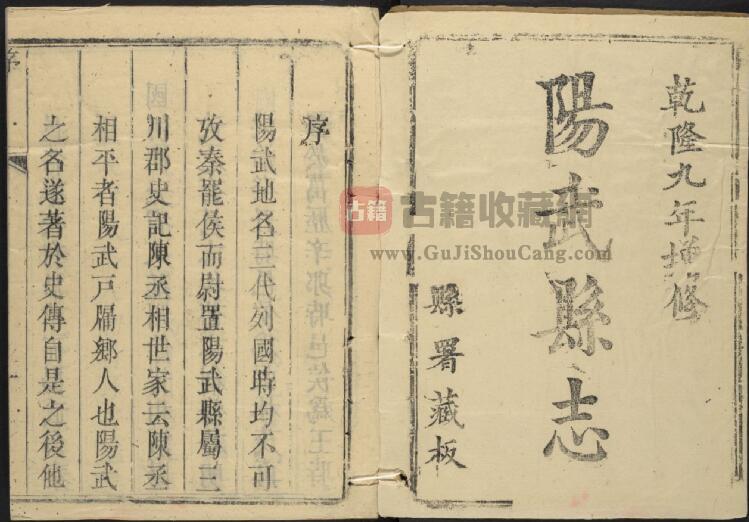 乾隆九年增修
陽武縣志
縣署藏板
古籍
古籍收藏網
www.GuJiShouCang.com
序
陽武地名三代列國時均不可
攷秦罷侯而尉置陽武縣屬三
川郡史記陳丞相世家云陳丞
相平者陽武戶牖鄉人也陽武
之名遂著於史傳自是之後他
序